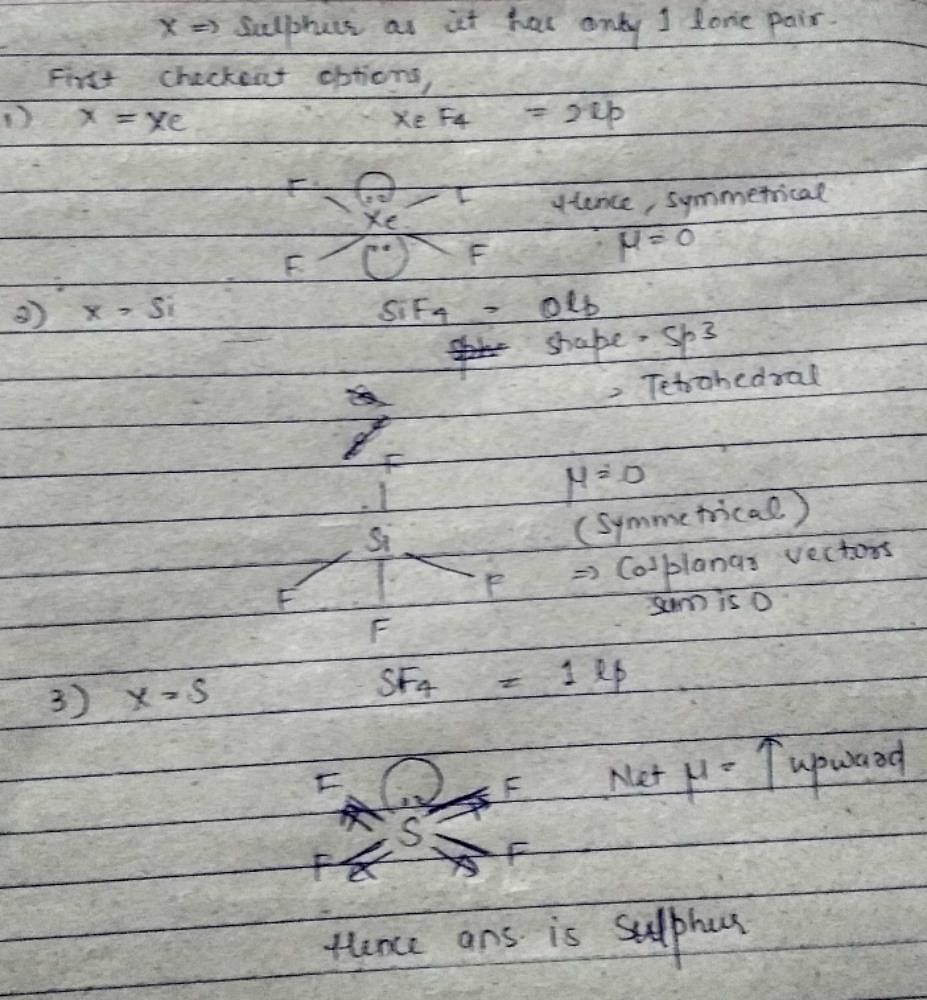 X => Sulphur as it has only 1 lone pair.
First checkout options,
1) X = Xe XeF4 = 2lp
F F
Xe
F F
Hence, symmetrical
μ = 0
2) X = Si SiF4 - 0lp
shape - Sp3
, Tetrahedral
F
Si
F F
F
μ = 0
(Symmetrical)
=> Co-planar vectors
sum is 0
3) X = S SF4 = 1 lp
F F
S
F F
Net μ = ↑ upward
Hence ans. is Sulphur